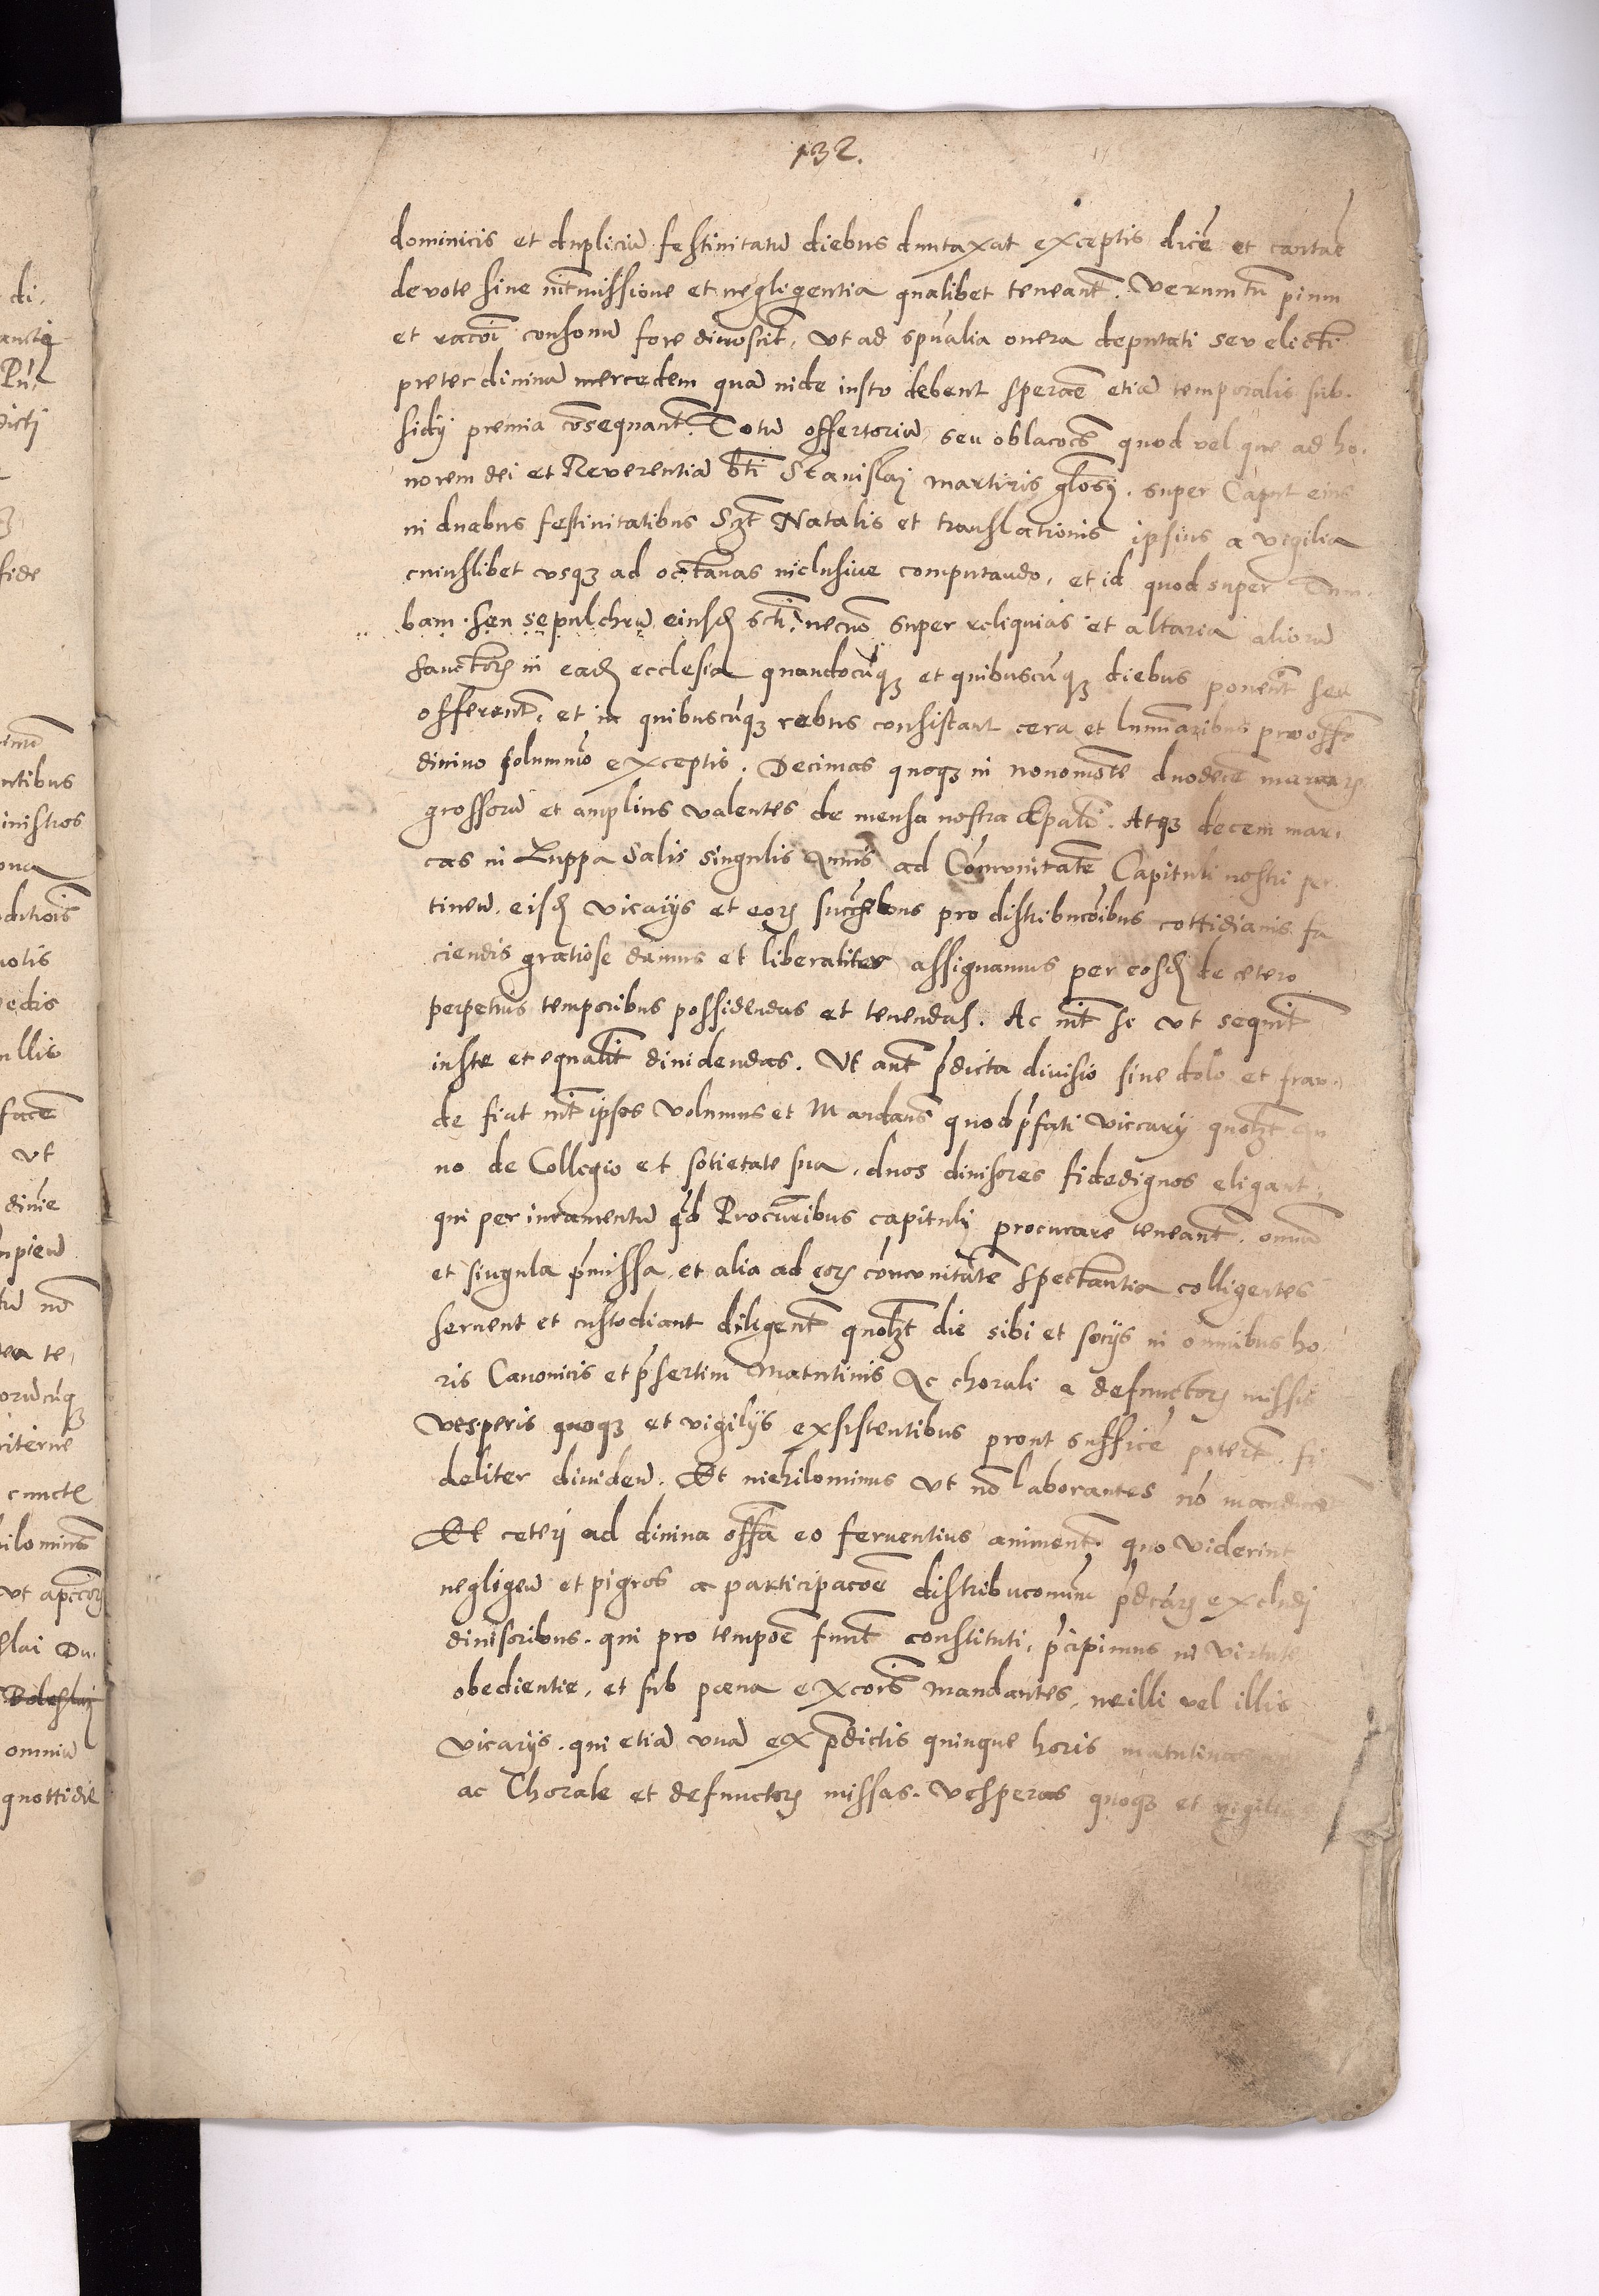 132.
dominicis et dupliciū festiuitatū diebus duntaxat exceptis dicē et cantāe
devote sine intmissione et negligentia qualibet teneant̄. Verumtn̄ pium
et racōi consonū fore dinoscit̄, vt ad spūalia onera deputati sev electi
preter diuinā mercedem quā inde iusto debent sperāe etiā temporalis sub-
sidij premia cōsequant̄. Totū offertoriū, seu oblacōes quod vel que ad ho-
norem dei et Reverentiā bt̄i Stanislaj martiris glōsj. super Caput eius
in duabus festiuitatibus Sʒt Natalis et translationis ipsius a vigilia
cuiuslibet vsqʒ ad octauas inclusiue computando, et id quod super Tum-
bam. seu sepulchrū eiusd̄ sct̄i, necnō super reliquias et altaria aliorū
sanctorꝝ in ead̄ ecclesia quandocūqʒ et quibuscūqʒ diebus ponent̄ seu
offerent̄, et in quibuscūqʒ rebus consistant cera et luminaribus pro off̄o
diuino solummō exceptis. Decimas quoqʒ in nouomōte duodecē marcarꝝ
grossorū et amplius valentes de mensa nostra Ep̄ali. Atqʒ decem mar-
cas in Zuppa Salis singulis Annis ad Cōmvnitatē Capituli nostri per-
tinen̄. eisd̄ vicarijs et eorꝝ succ̄ībus pro distribucōibus cottidianis fa
ciendis gratiose damus et liberaliter assignamus per eosd̄ de cetero
perpetuis temporibus possidendas et tenendas. Ac int̄ se vt sequit̄
iuste et equalit̄ diuidendas. Vt aut̄ p̄dicta divisio sine dolo et frav-
de fiat int̄ ipsos volumus et Mandam̄s quod p̄fati viccarij quolʒt an
no de Collegio et sotietate sua, duos diuisores fidedignos eligant,
qui per iuramentū q̄d Procur̄ibus capitulj procurare teneant̄. omnia
et singula p̄missa, et alia ad eorꝝ cōmvnitātē spectantia colligentes
seruent et custodiant diligent̄ quolʒt die sibi et socijs in omnibus ho-
ris Canonicis et p̄sertim Matutinis Ac chorali e defunctorꝝ missis
vesperis quoqʒ et vigilijs exsistentibus prout sufficē poterit. fi
deliter diuiden̄. Et nichilominus vt nō laborantes nō manducēt
Et ceterj ad diuina off̄a eo feruentius animent̄, quo viderint
negligen̄ et pigros a participacōe distribuconum p̄dcārꝝ excludj
diuisoribus. qui pro tempoē fuer̄t constituti, p̄cipimus in virtute
obedientie, et sub pœna excoīs mandantes, ne illi vel illis
vicarijs. qui etiā vnā ex p̄dictis quinque horis matutinas
ac Chorale et defunctorꝝ missas. vesperas quoqʒ et vigilias